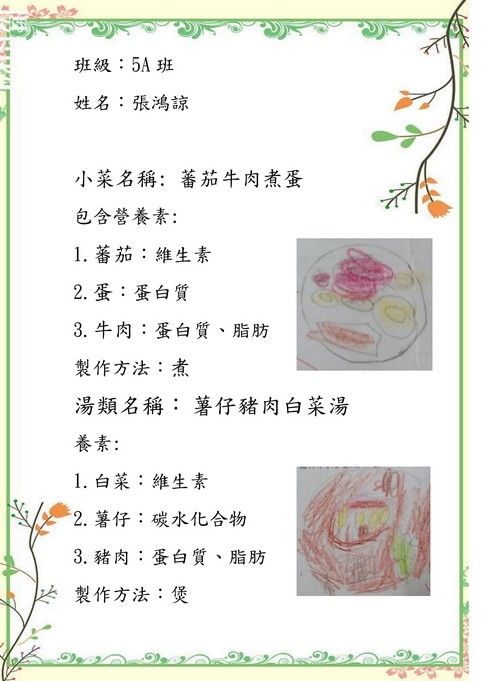 班級：5A 班
姓名：張鴻諒
小菜名稱: 蕃茄牛肉煮蛋
包含營養素:
1.蕃茄：維生素
2.蛋：蛋白質
3.牛肉：蛋白質、脂肪
製作方法：煮
湯類名稱： 薯仔豬肉白菜湯
養素:
1.白菜：維生素
2.薯仔：碳水化合物
3.豬肉：蛋白質、脂肪
製作方法：煲